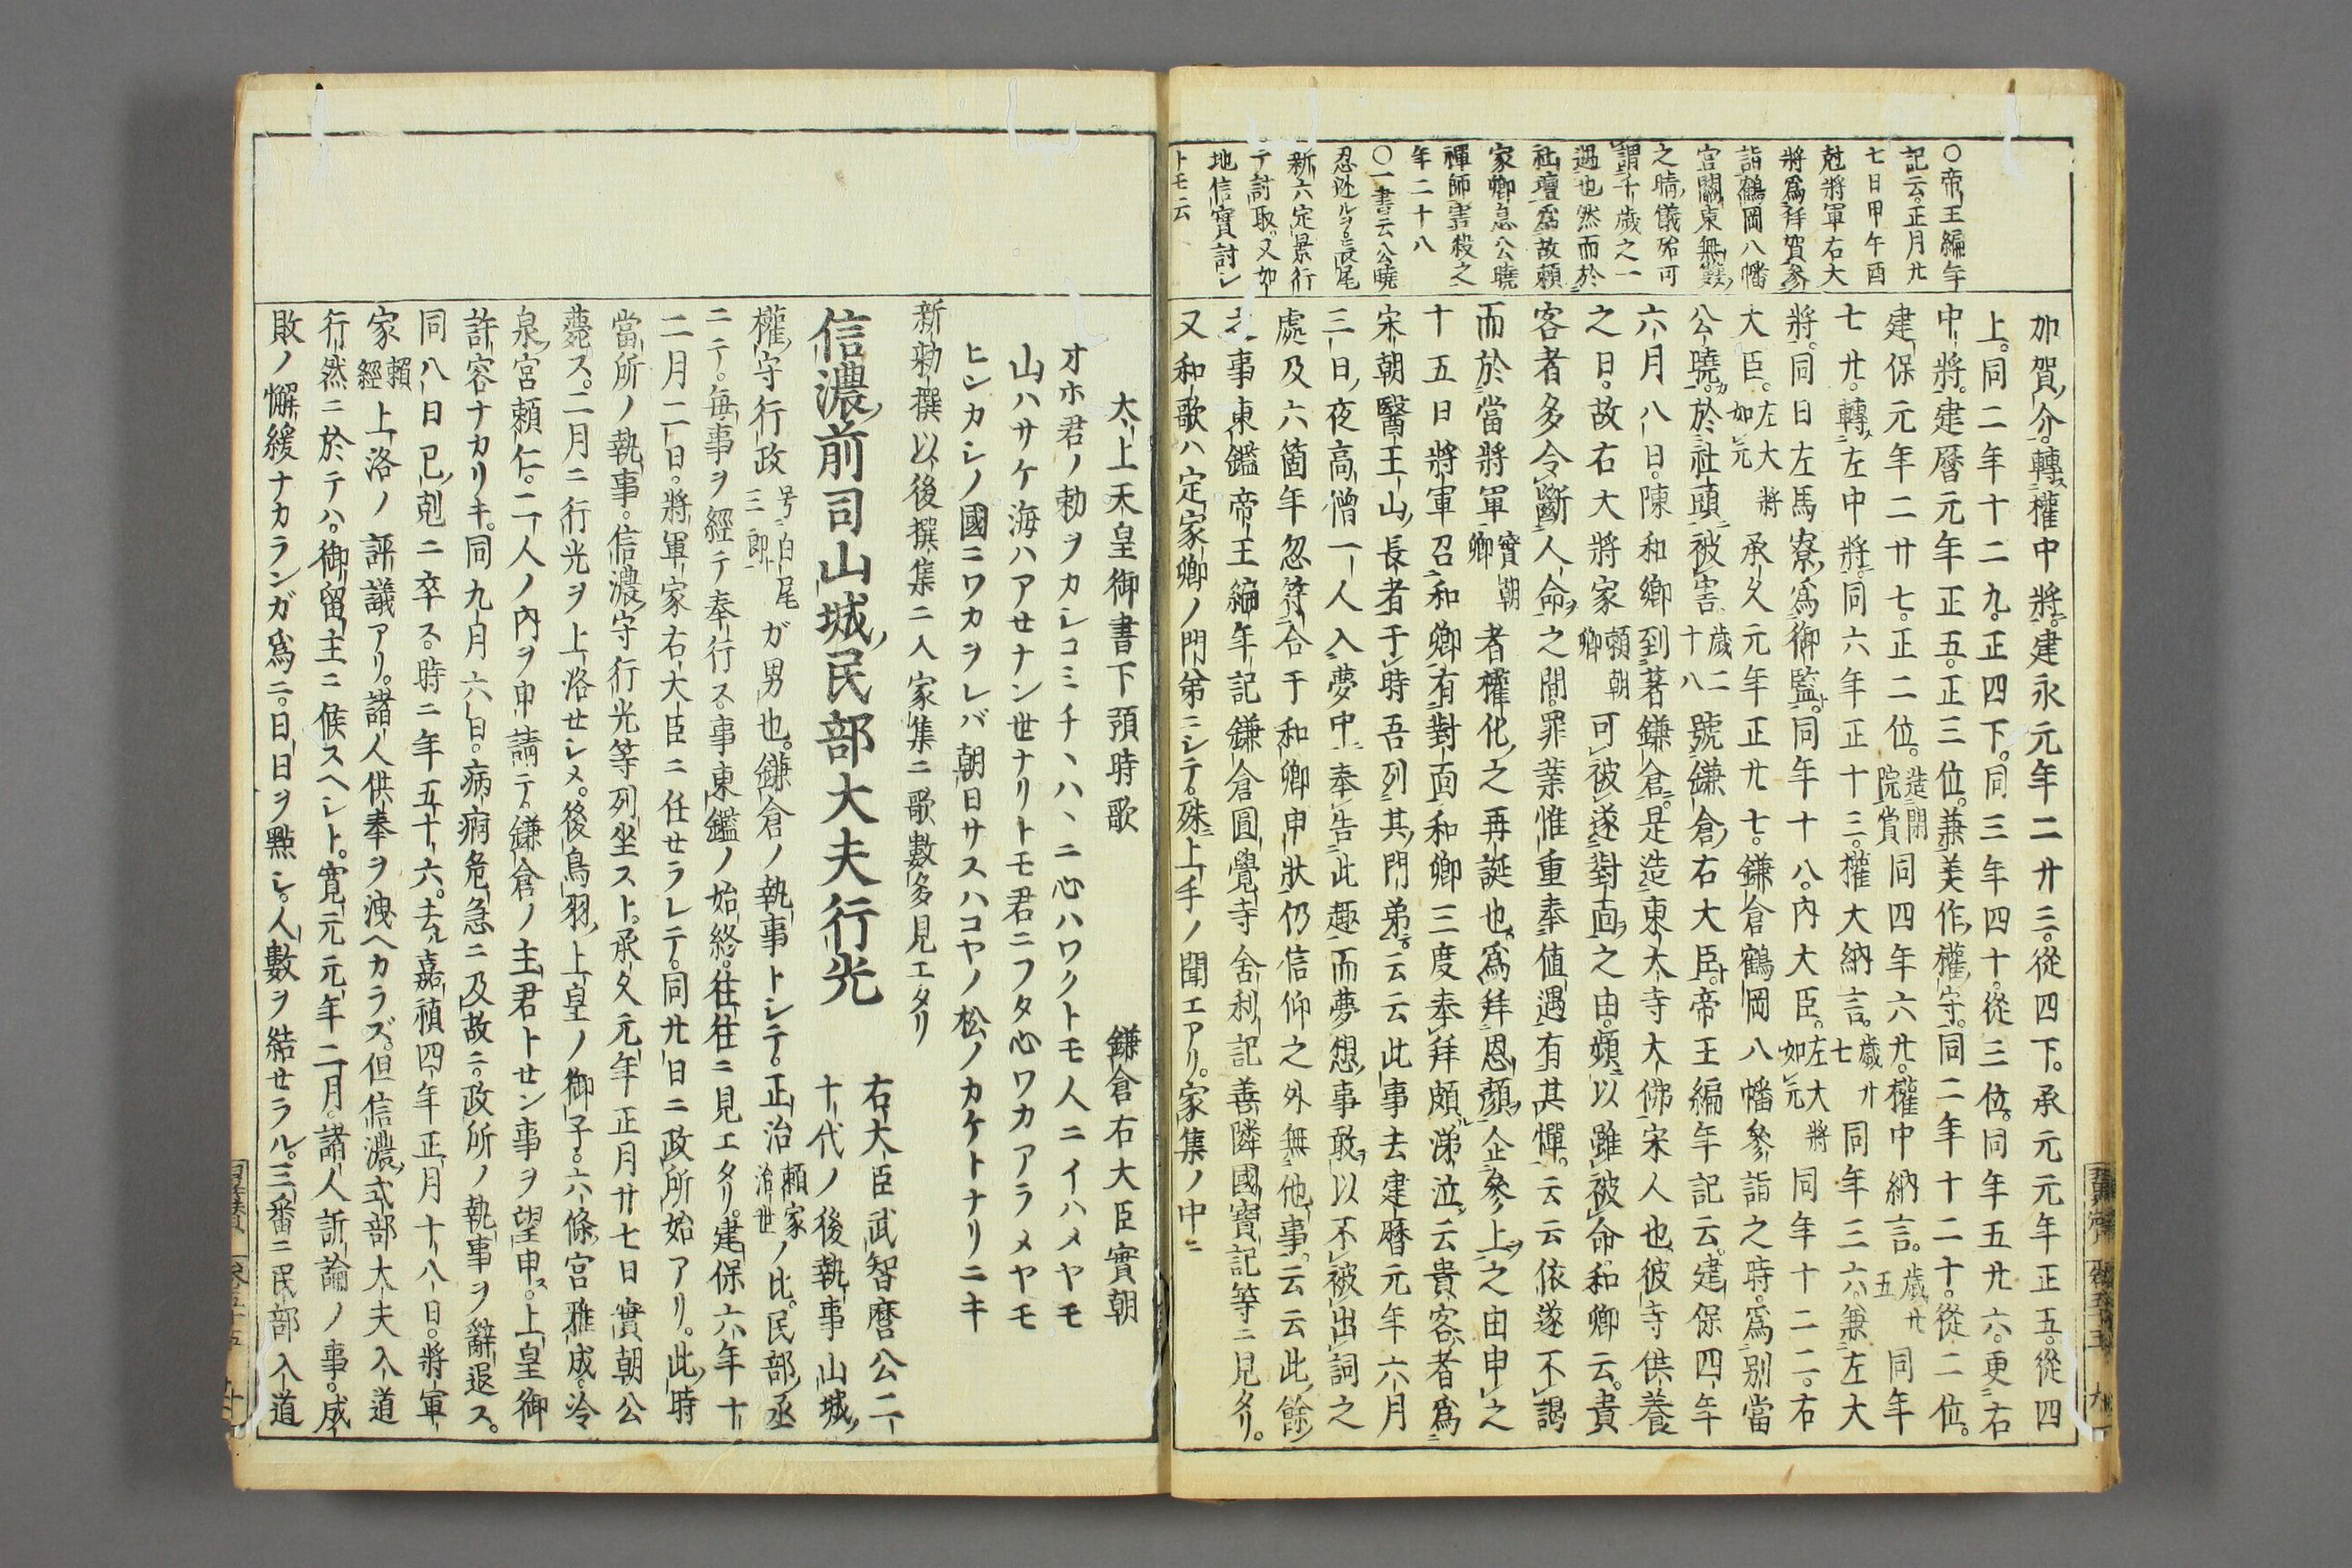 〇帝王編年
記云。正月廿
七日甲午酉
尅將軍右大
將爲拜賀參
詣鶴岡八幡
宮關東無雙
之晴儀殆可
謂千歲之一
遇也然而於
社壇爲故賴
家卿息公曉
禪師害殺之
年二十八
〇一書云公曉
忍逃ルヲ長尾
新六定景行
テ討取。又如
地信實討シ
トモ云
加賀介。轉權中將。建永元年二廿三。從四下。承元元年正五。從四
上。同二年十二九。正四下。同三年四十。從三位。同年五廿六。更右
中將。建曆元年正五。正三位。兼美作權守。同二年十二十。從二位。
建保元年二廿七。正二位。造閑院賞同四年六廿。權中納言。歲廿五同年
七廿。轉左中將。同六年正十三。權大納言。歲廿七同年三六。兼左大
將。同日左馬寮爲御監。同年十八。內大臣。左大將如元同年十二二。右
大臣。左大將如元承久元年正廿七。鎌倉鶴岡八幡參詣之時。爲別當
公曉。於社頭被害歲二十八號鎌倉右大臣。帝王編年記云。建保四年
六月八日。陳和卿到著鎌倉。是造東大寺大佛宋人也彼寺供養
之日。故右大將家賴朝卿可被遂對面之由。頻以雖被命和卿云。貴
客者多令斷人命之間。罪業惟重奉値遇有其憚。云云依遂不謁
而於當將軍實朝卿者權化之再誕也爲拜恩顏企參上之由申之
十五日將軍召和卿有對面和卿三度奉拜頗涕泣云貴客者爲
宋朝醫王山長者于時吾列其門弟。云云此事去建曆元年六月
三日夜高僧一人入夢中奉告此趣而夢想事敢以不被出詞之
處及六箇年忽符合于和卿申狀仍信仰之外無他事。云云此餘
之事東鑑帝王編年記鎌倉圓覺寺舍利記善隣國寶記等ニ見タリ。
又和歌ハ定家卿ノ門弟ニシテ。殊上手ノ聞エアリ。家集ノ中ニ
太上天皇御書下預時歌　鎌倉右大臣實朝
オホ君ノ勅ヲカシコミチヽハヽニ心ハワクトモ人ニイハメヤモ
山ハサケ海ハアセナン世ナリトモ君ニフタ心ワカアラメヤモ
ヒンカシノ國ニワカヲレバ朝日サスハコヤノ松ノカケトナリニキ
新勅撰以後撰集ニ入家集ニ歌數多見エタリ
信濃前司山城民部大夫行光　右大臣武智麿公二十代ノ後執事山城
權守行政号白尾三郎ガ男也。鎌倉ノ執事トシテ。正治賴家治世ノ比。民部丞
ニテ。每事ヲ經テ奉行ス。事東鑑ノ始終。往往ニ見エタリ。建保六年十
二月二日。將軍家右大臣ニ任セラレテ。同廿日ニ政所始アリ。此時
當所ノ執事。信濃守行光等列坐スト。承久元年正月廿七日實朝公
薨ス。二月ニ行光ヲ上洛セシメ。後鳥羽上皇ノ御子。六條宮雅成。冷
泉宮賴仁。二人ノ內ヲ申請テ鎌倉ノ主君トセン事ヲ望申ス。上皇御
許容ナカリキ。同九月六日。病痾危急ニ及故ニ。政所ノ執事ヲ辭退ス。
同八日巳尅ニ卒ス。時ニ年五十六。去ル嘉禎四年正月十八日。將軍
家賴經上洛ノ評議アリ。諸人供奉ヲ洩ヘカラズ。但信濃式部大夫入道
行然ニ於テハ。御留主ニ候スヘシト。寬元元年二月。諸人訴論ノ事。成
敗ノ懈緩ナカランガ爲ニ。日日ヲ點シ。人數ヲ結セラル。三番ニ民部入道